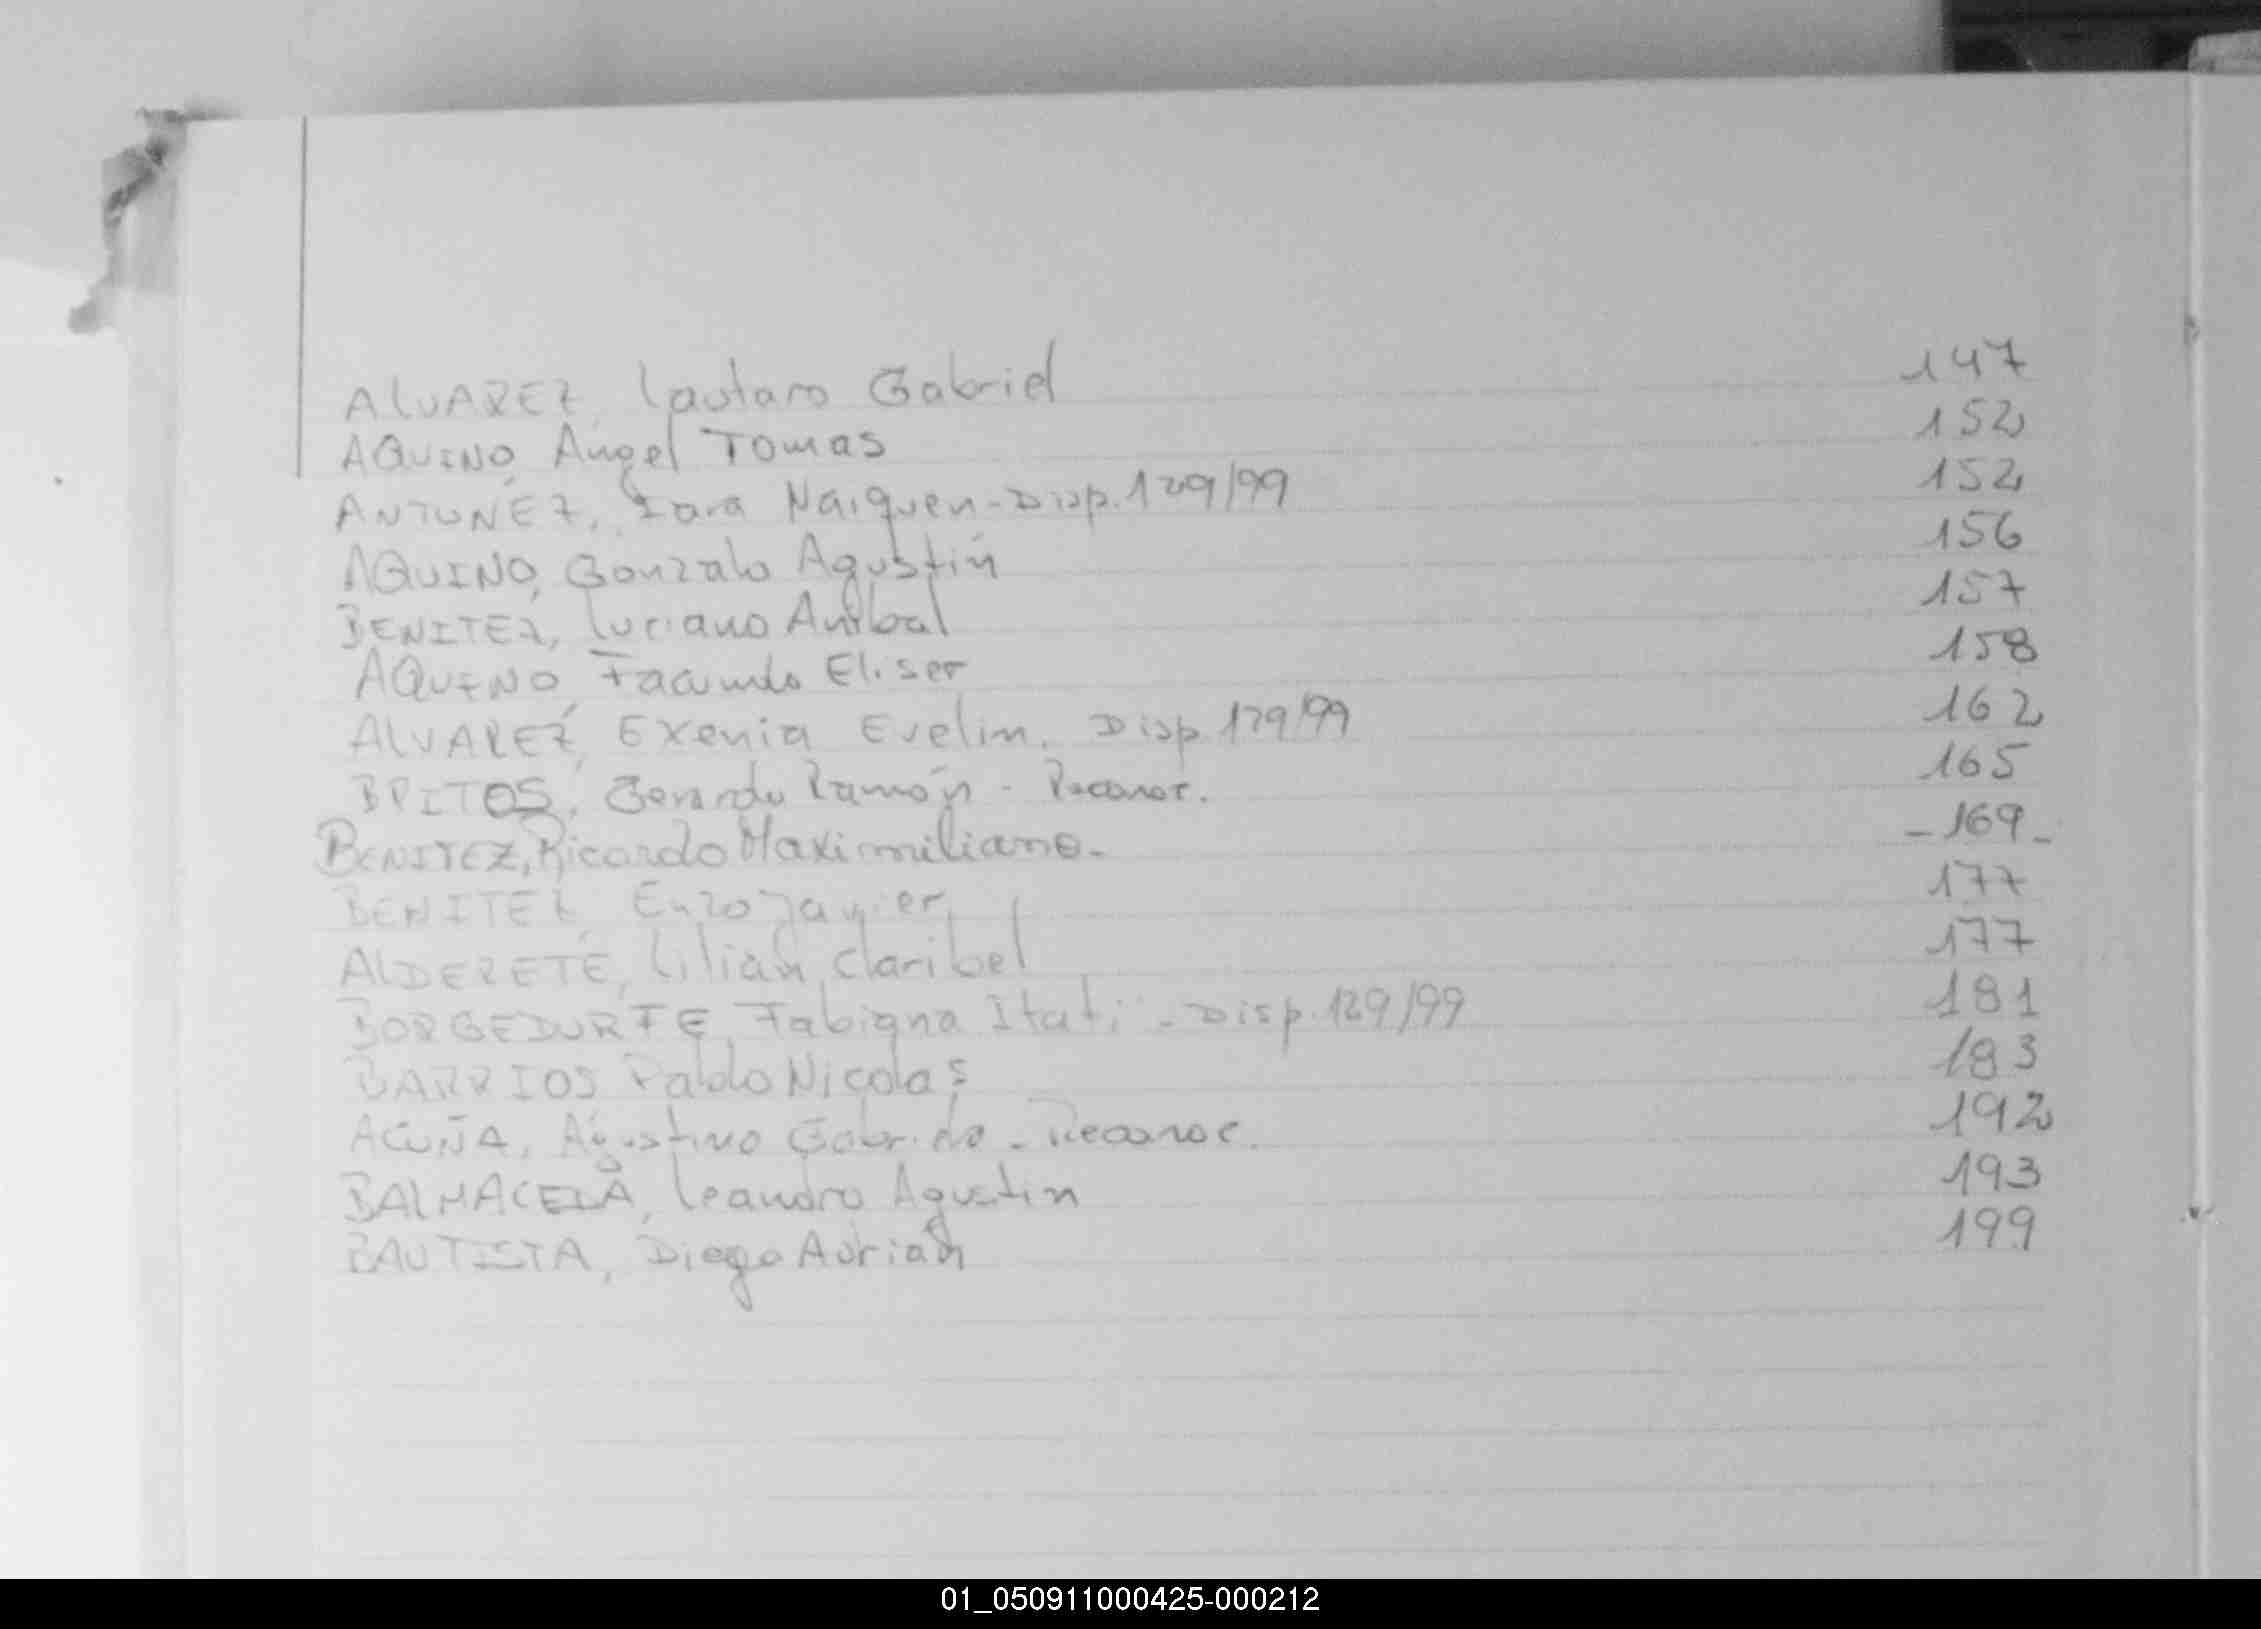 ALVAREZ, Lautaro Gabriel 147
AQUINO, Ángel Tomas 152
ANTUNEZ, Iara Naiquen - Disp. 129/99 152
AQUINO, Gonzalo Agustín 156
BENITEZ, Luciano Anibal 157
AQUINO, Facundo Eliser 158
ALVAREZ, Exenia Evelin. Disp 129/99 162
BRITOS, Gerardo Ramón - Reconoc. 165
BENITEZ, Ricardo Maximiliano - - 169 -
BENITEZ, Enzo Javier 177
ALDERETE, Lilian Claribel 177
BORGEDURFE, Fabiana Itatí - Disp. 129/99 181
BARRIOS Pablo Nicolas 183
ACUÑA, Agustino - Reconoc. 192
BALMACEDA, Leandro Agustin 193
BAUTISTA, Diego Adrian 199
01_050911000425-000212